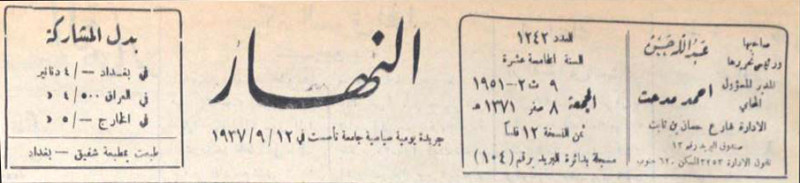 صاحبها
ورئيس تحريرها
عبد الله حسن
المدير المسؤول
المحامي
احمد مدحت
الادارة شارع حسان بن ثابت
صندوق البريد رقم ١٣
تلفون الادارة ٣٢٥٣ السكن ٦٢٠ جنوب
العدد ١٢٤٢
السنة الخامسة عشرة
الجمعة
٩ ت٢ــ١٩٥١
٨ صفر ١٣٧١ هـ
ثمن النسخة ١٢ فلساً
مسجلة بدائرة البريد برقم (١٠٤)
النهار
جريدة يومية سياسية جامعة تأسست في ١٩٣٧/٩/١٢
بدل المشاركة
في بغداد ــ/٤ دنانير
في العراق ٤/٥٠٠ د
في الخارج ــ/٥ د
طبعت بمطبعة شفيق ــ بغداد